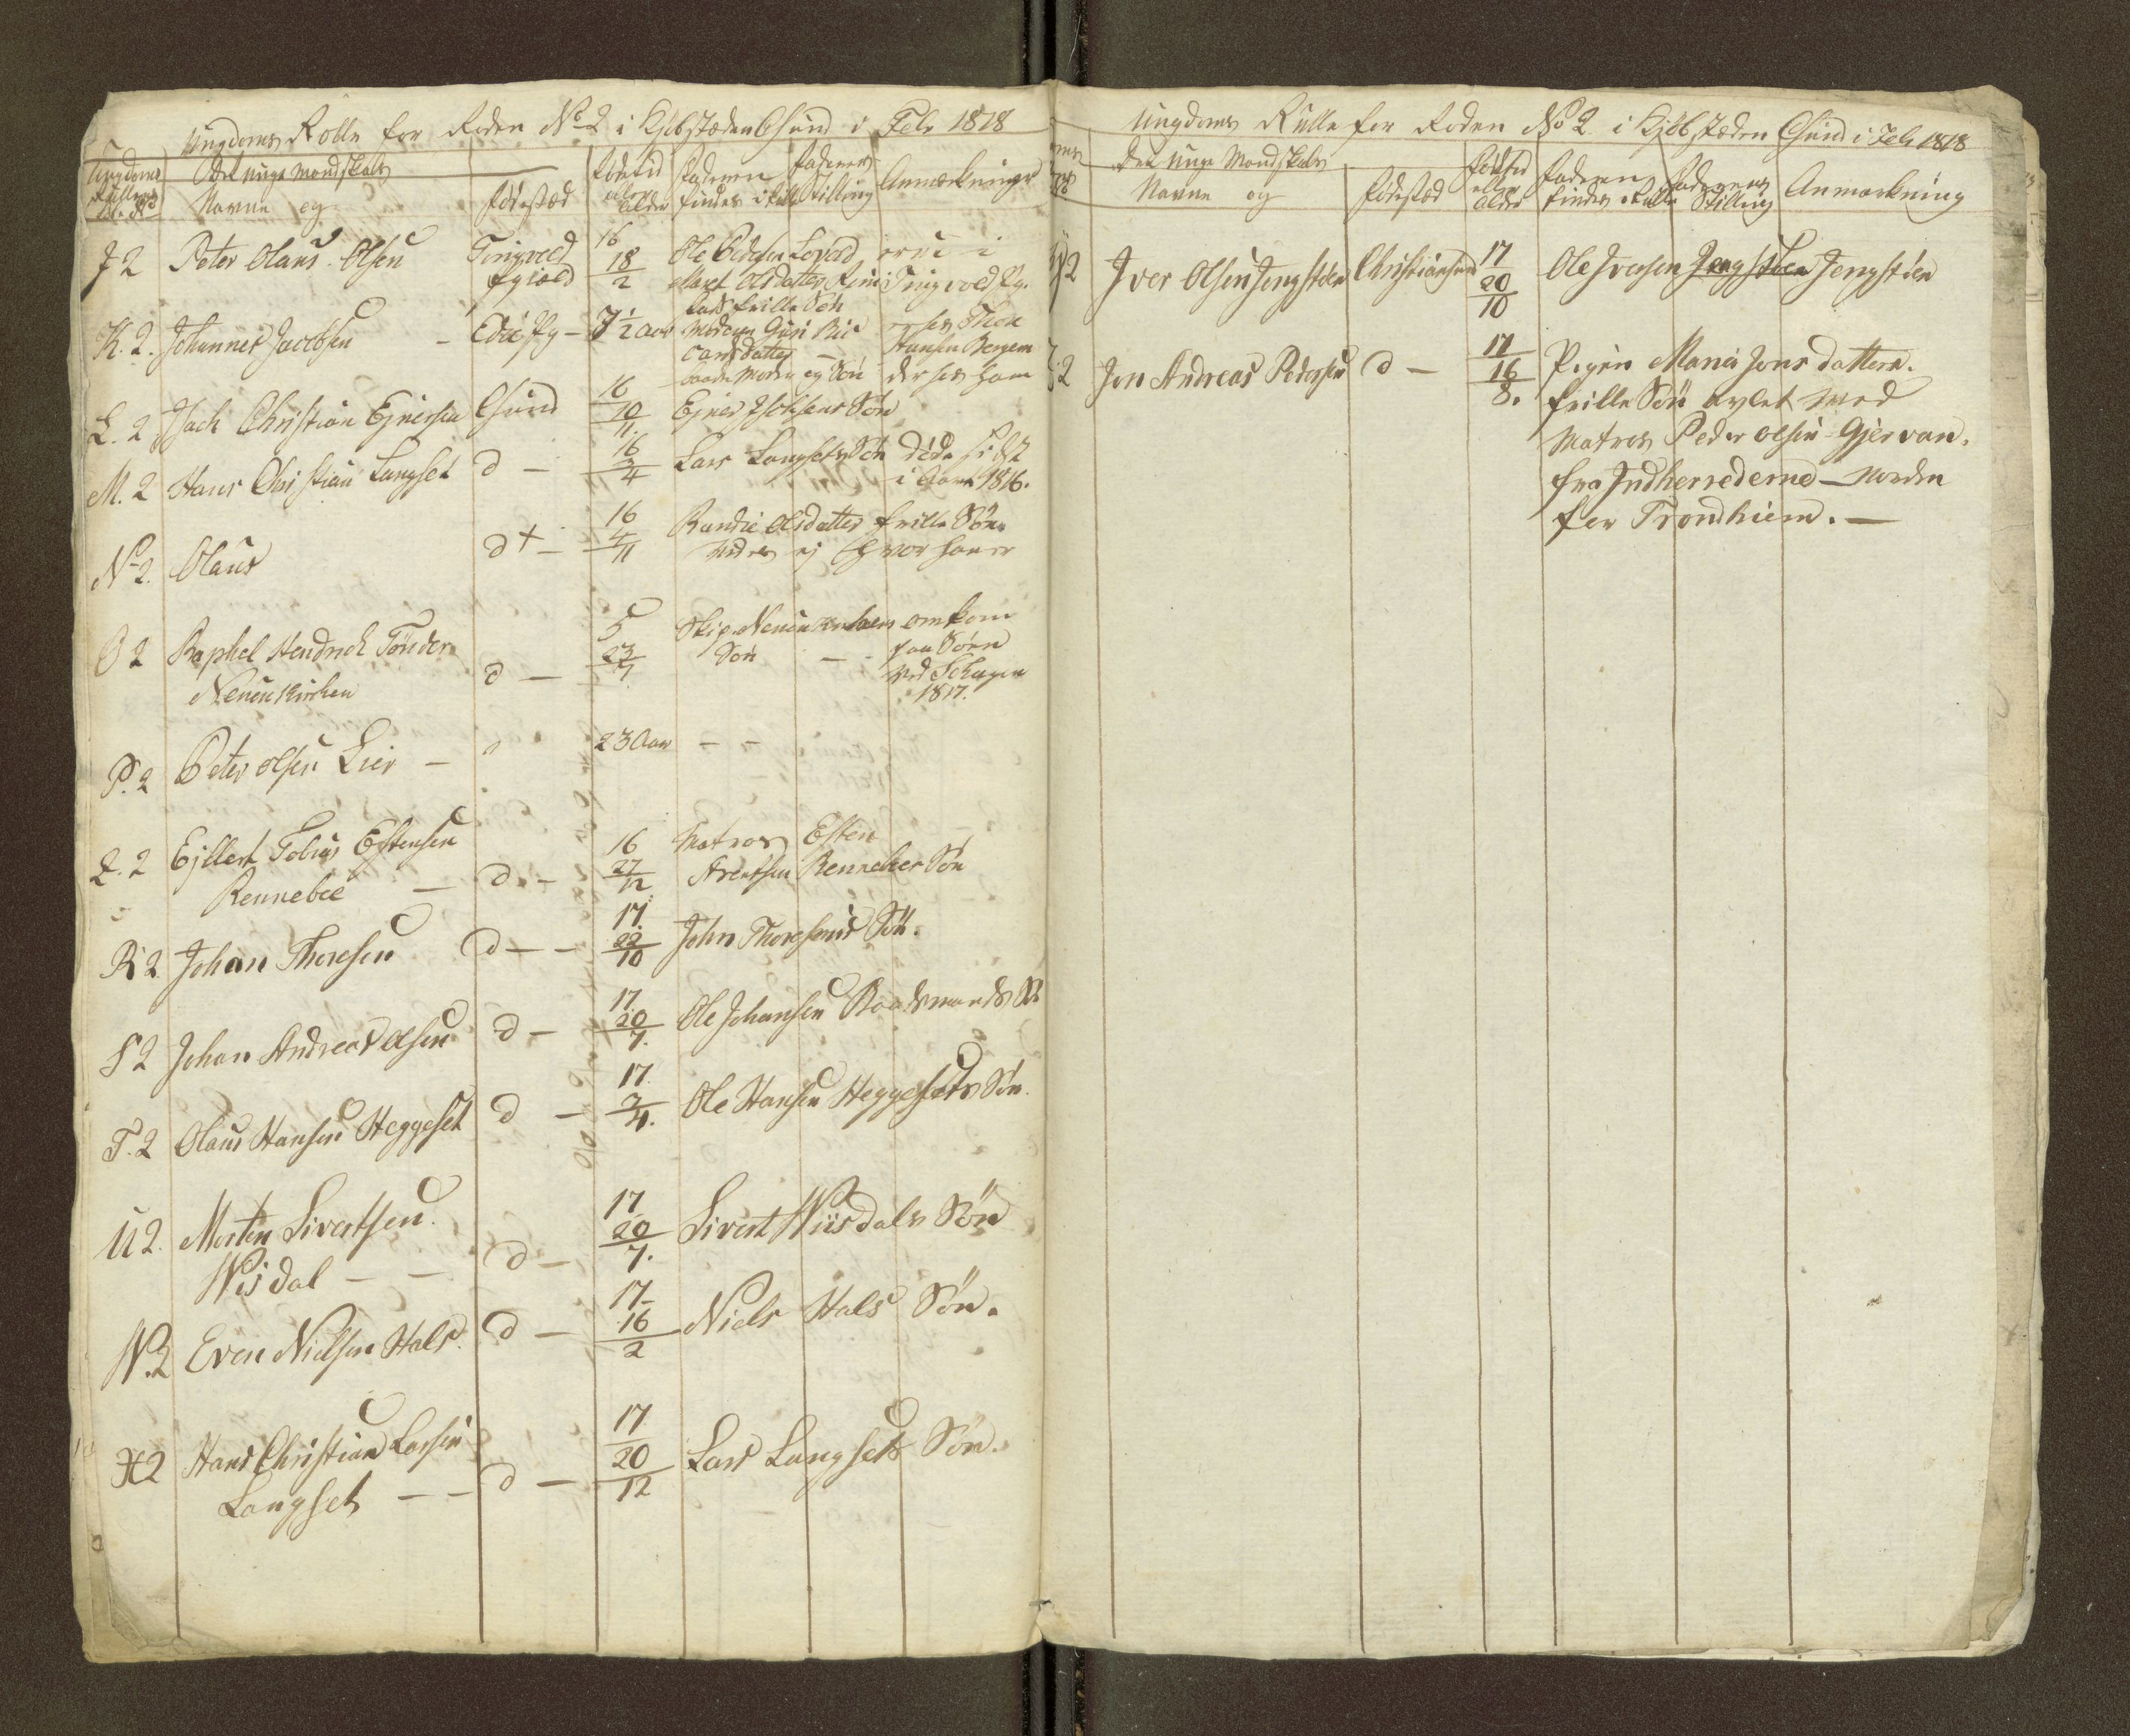 Ungdoms Rolle for Roden No 2 i Kjöbstæden CSund i Febr 1818
Ungdoms Det unge Mandskabs
Navne og Födestæd Födetid eller Alder Faderen findes i Rulle Faderens Stilling Anmærkninger
J 2 Peter Olaus Olsen Tingvold Pgield 16 18/2 Ole Pedersen
Maret Olsdatter i Tingvold Pg.
frille Sön
K. 2. Johannes Jacobsen - Edöe Pg - 7 1/2 Aar Moderen Guri
Larsdatter - Hansen Bergem
baade Moder og Sön
L. 2 Isach Christian Ejnersen CSund 16 10/11. Ejner Isachsens Sön
M. 2 Hans Christian Langset d - 16 3/4 Lars Langsets Sön döde sidst
i Aaret 1816.
N 2. Olaus d + - 16 4/11 Randie Olsdatter frille Sön
vides ej hvor han er
O 2 Raphel Hendrich Tönder
Neuenkirchen d - 5 23/7 Skip. Neuenkirchens omkom
Sön - paa Söen
ved Schagen
1817.
P. 2 Peter Olsen Lier - 23 Aar - -
Q. 2 Ejllert Tobias Estensen
Rennebée - d - 16 27/12 Matros Esten
Arentsen Rennebes Sön
R 2 Johan Thoresen d - - 17. 22/10 John Thoresens Sön.
S 2 Johan Andreas Olsen d - 17 20/7. Ole Johansen Baadsmands S.
T. 2 Olaus Hansen Heggeset d - 17. 3/4. Ole Hansen Heggesets Sön.
U 2. Morten Sivertsen
Wisdal - - d - 17 20/7. Sivert Wiisdals Sön
W. 2 Even Nielsen Hals. d - 17- 16/2 Niels Hals Sön.
X 2 Hans Christian Larsen
Langset - - d - 17 20/12 Lars Langsets Sön.
Ungdoms Rulle for Roden No 2 i Kjöbstæden CSund i Feb 1818
Det unge Mandskabs
Navne og Födestæd Födetid eller Alder Faderen findes i Rulle Faderens Stilling Anmærkning
2 Iver Olsen Jengstöen Christiansund 17 20/10 Ole Iversen Jengstöen Jengstöen
2 Jon Andreas Pedersen d - 17 16/8. Pigen Maria Jonsdatters.
frille Sön avlet med
Matros Peder Olsen Gjervan.
fra Indherrederne - Norden
for Trondhiem. -